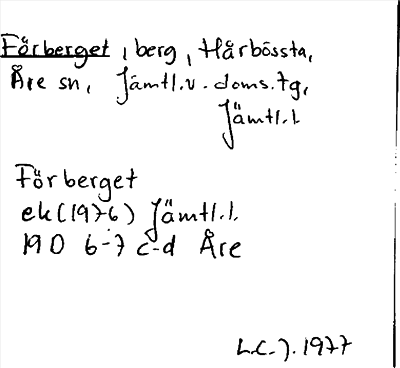 Förberget, berg, Hårbössta,
Åre sn, Jämtl.v.doms.tg,
Jämtl.l
Förberget
ek (1976) Jämtl.l.
19D 6-7 c-d Åre
L.C.J. 1977